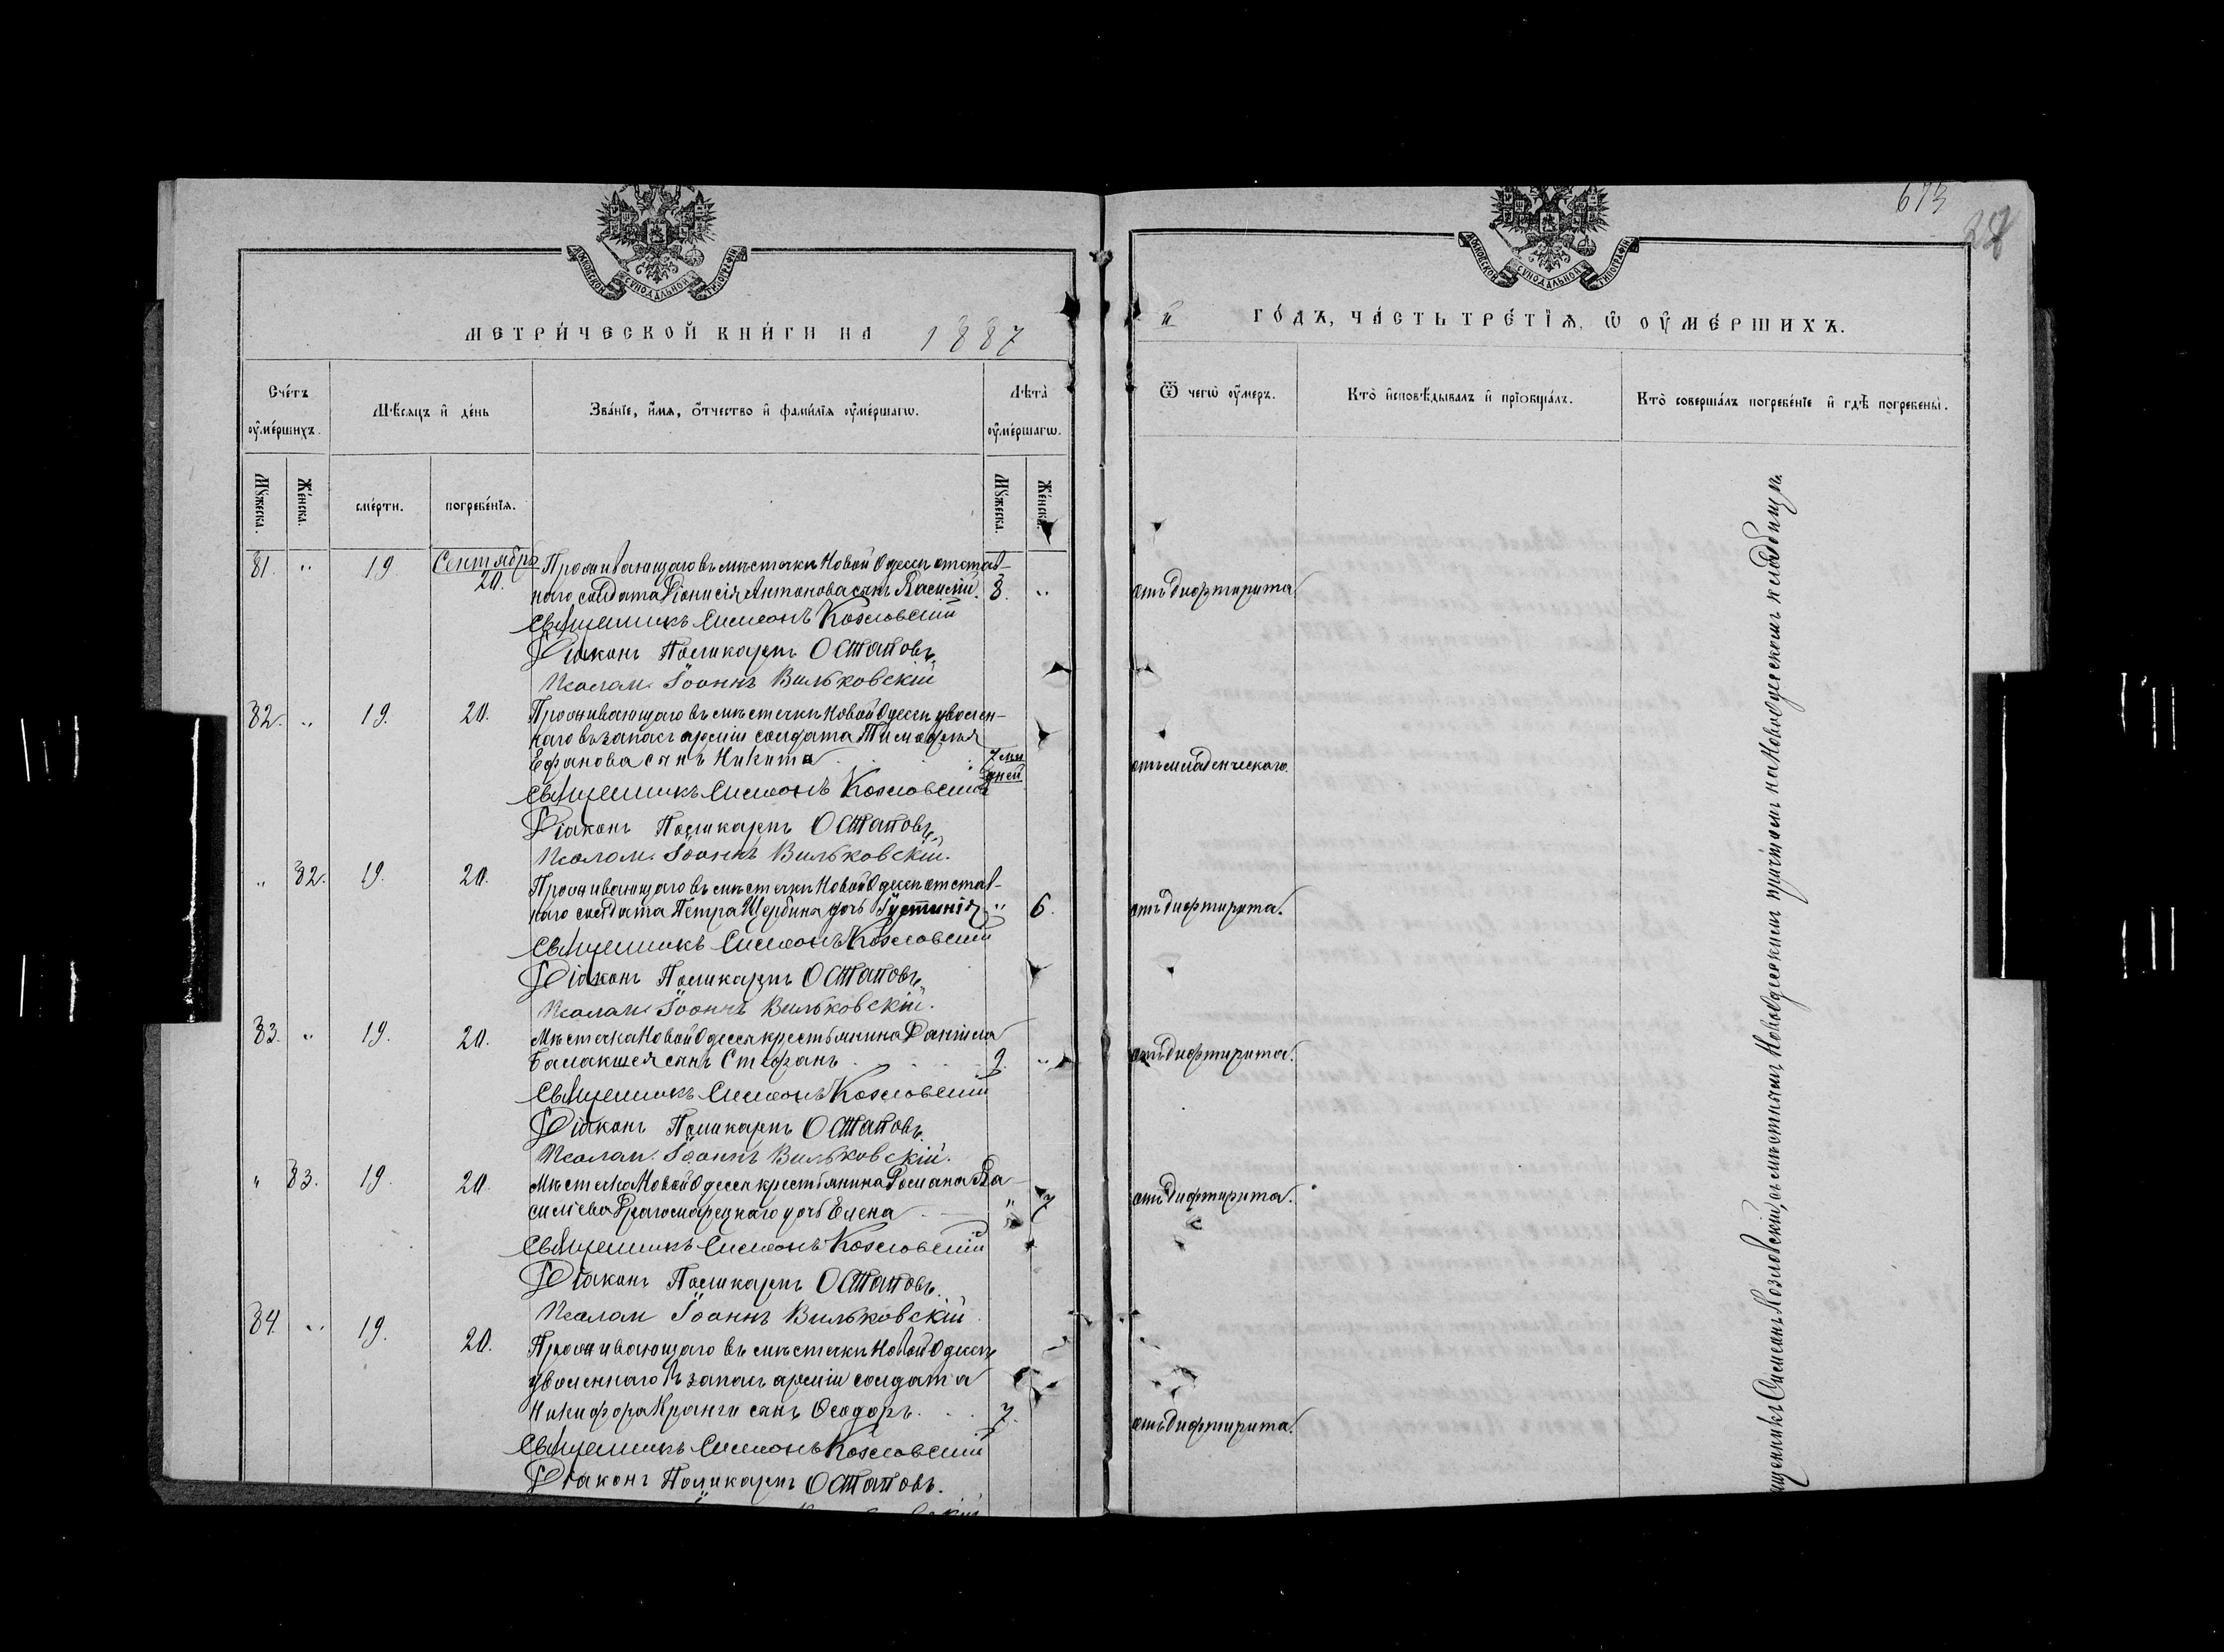 МОСКОВСКОЙ СѴНОДАЛЬНОЙ ТИПОГРАФІИ
МЕТРИ́ЧЕСКОЙ КНИ́ГИ НА 1887
Сче́тъ ᲂу҆ме́ршихъ.
Мѣ́сяцъ и҆ де́нь
Зва́нїе, и҆́мя, ѻ҆́тчество и҆ фами́лїя ᲂу҆ме́ршагѡ.
Лѣ́та ᲂу҆ме́ршагѡ.
Мꙋ́жеска.
Же́нска.
сме́рти.
погребе́нїя.
Мꙋ́жеска.
Же́нска.
81. " 19. Сентябрь 20. Проживающаго въ мѣстечкѣ Новой Одессѣ отстав-
наго солдата Діонисія Антонова сынъ Василій. 3. "
Священникъ Симеонъ Козловскій
Діаконъ Поликарпъ Остаповъ.
Псалом. Іоаннъ Вильковскій
82. " 19. 20. Проживающаго въ мѣстечкѣ Новой Одессѣ уволен-
наго въ запасъ арміи солдата Тимофея
Ефанова сынъ Никита 7ми дней
Священникъ Симеонъ Козловскій
Діаконъ Поликарпъ Остаповъ.
Псалом. Іоаннъ Вильковскій.
" 82. 19. 20. Проживающаго въ мѣстечкѣ Новой Одессѣ отстав-
наго солдата Петра Щербина дочь Іустинія " 6.
Священникъ Симеонъ Козловскій
Діаконъ Поликарпъ Остаповъ.
Псалом. Іоаннъ Вильковскій.
83. " 19. 20. Мѣстечка Новой Одессы крестьянина Даніила
Балакшея сынъ Стефанъ 9. "
Священникъ Симеонъ Козловскій
Діаконъ Поликарпъ Остаповъ.
Псалом. Іоаннъ Вильковскій.
" 83. 19. 20. Мѣстечка Новой Одессы крестьянина Романа Ва-
силіева дочь Елена " 7
Священникъ Симеонъ Козловскій
Діаконъ Поликарпъ Остаповъ.
Псалом Іоаннъ Вильковскій
84. " 19. 20. Проживающаго въ мѣстечкѣ Новой Одессѣ
уволеннаго въ запасъ арміи солдата
Никифора Кранги сынъ Ѳеодоръ 7.
Священникъ Симеонъ Козловскій
Діаконъ Поликарпъ Остаповъ.
673
МОСКОВСКОЙ СѴНОДАЛЬНОЙ ТИПОГРАФІИ
й ГО́ДЪ, ЧА́СТЬ ТРЕ́ТЇЯ, Ѡ҆ ОУ҆МЕ́РШИХЪ.
Ѿ чегѡ̀ ᲂу҆́меръ.
Кто̀ и҆сповѣ́дывалъ и҆ прїѡбща́лъ.
Кто̀ соверша́лъ погребе́нїе и҆ гдѣ̀ погребены̀.
отъ дифтирита
отъ младенческаго.
отъ дифтирита.
отъ дифтирита.
отъ дифтирита.
отъ дифтирита.
Симеонъ Козловскій, съ мѣстнымъ Новоодесскимъ причтомъ на Новоодесскомъ кладбищѣ